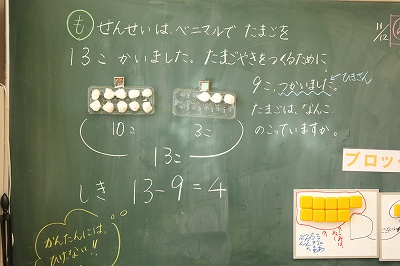 も せんせいは、ベニマルで たまごを
13こ かいました。たまごやきをつくるために
9こ、つかいました。 ひきざん
たまごは、なんこ
のこっていますか。
10こ 3こ
13こ
しき 13-9=4
かんたんには、
ひけない!!
11/12
ブロッ